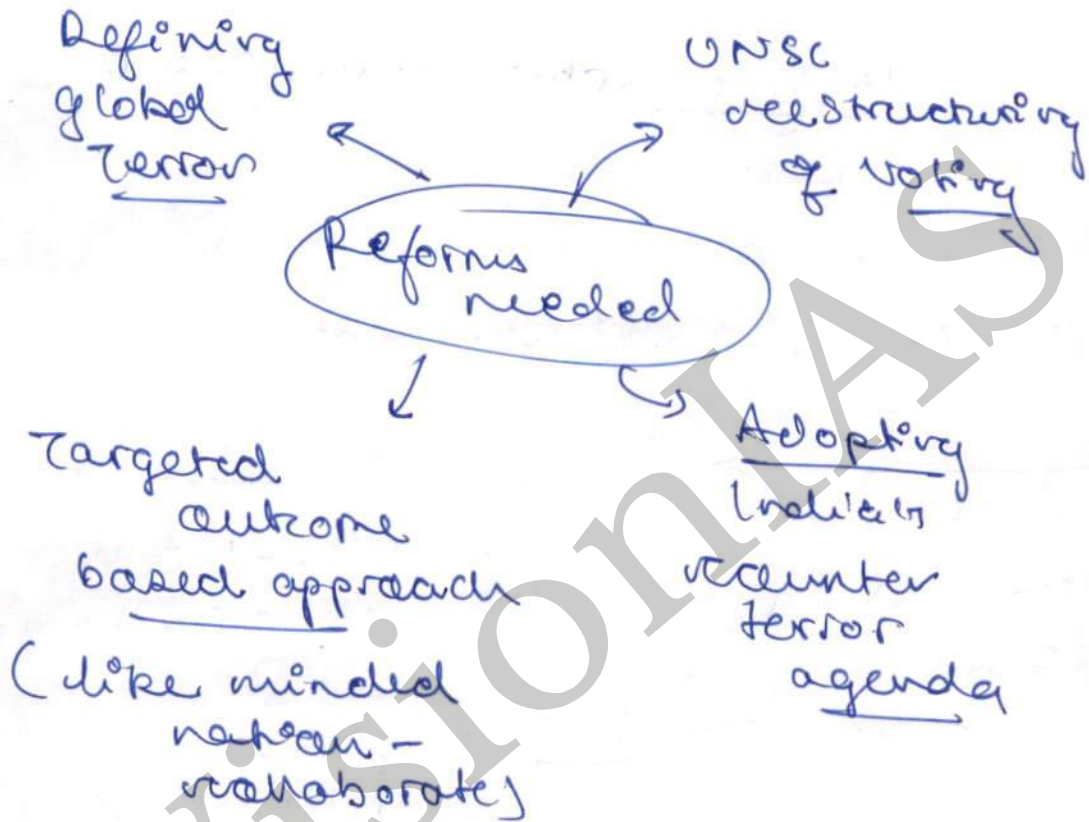 Defining
global
Terror
UNSC
restructuring
of voting
Reforms
needed
Targeted
outcome
based approach
(like minded
nation -
collaborate)
Adopting
India's
counter
terror
agenda
VisionIAS